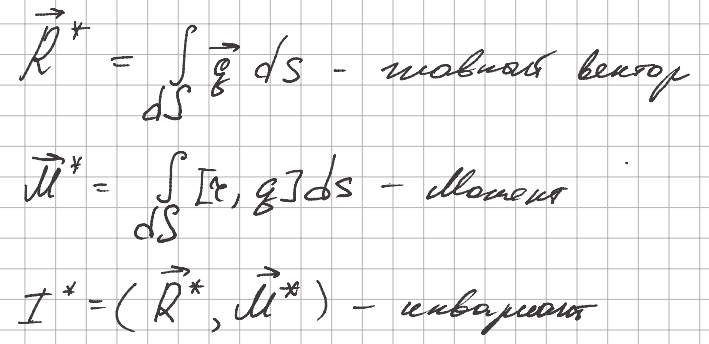 $\vec{R}^* = \int_{dS} \vec{q} \, ds$ – главный вектор
$\vec{M}^* = \int_{dS} [r, q] ds$ – Момент
$I^* = (\vec{R}^*, \vec{M}^*)$ – инвариант